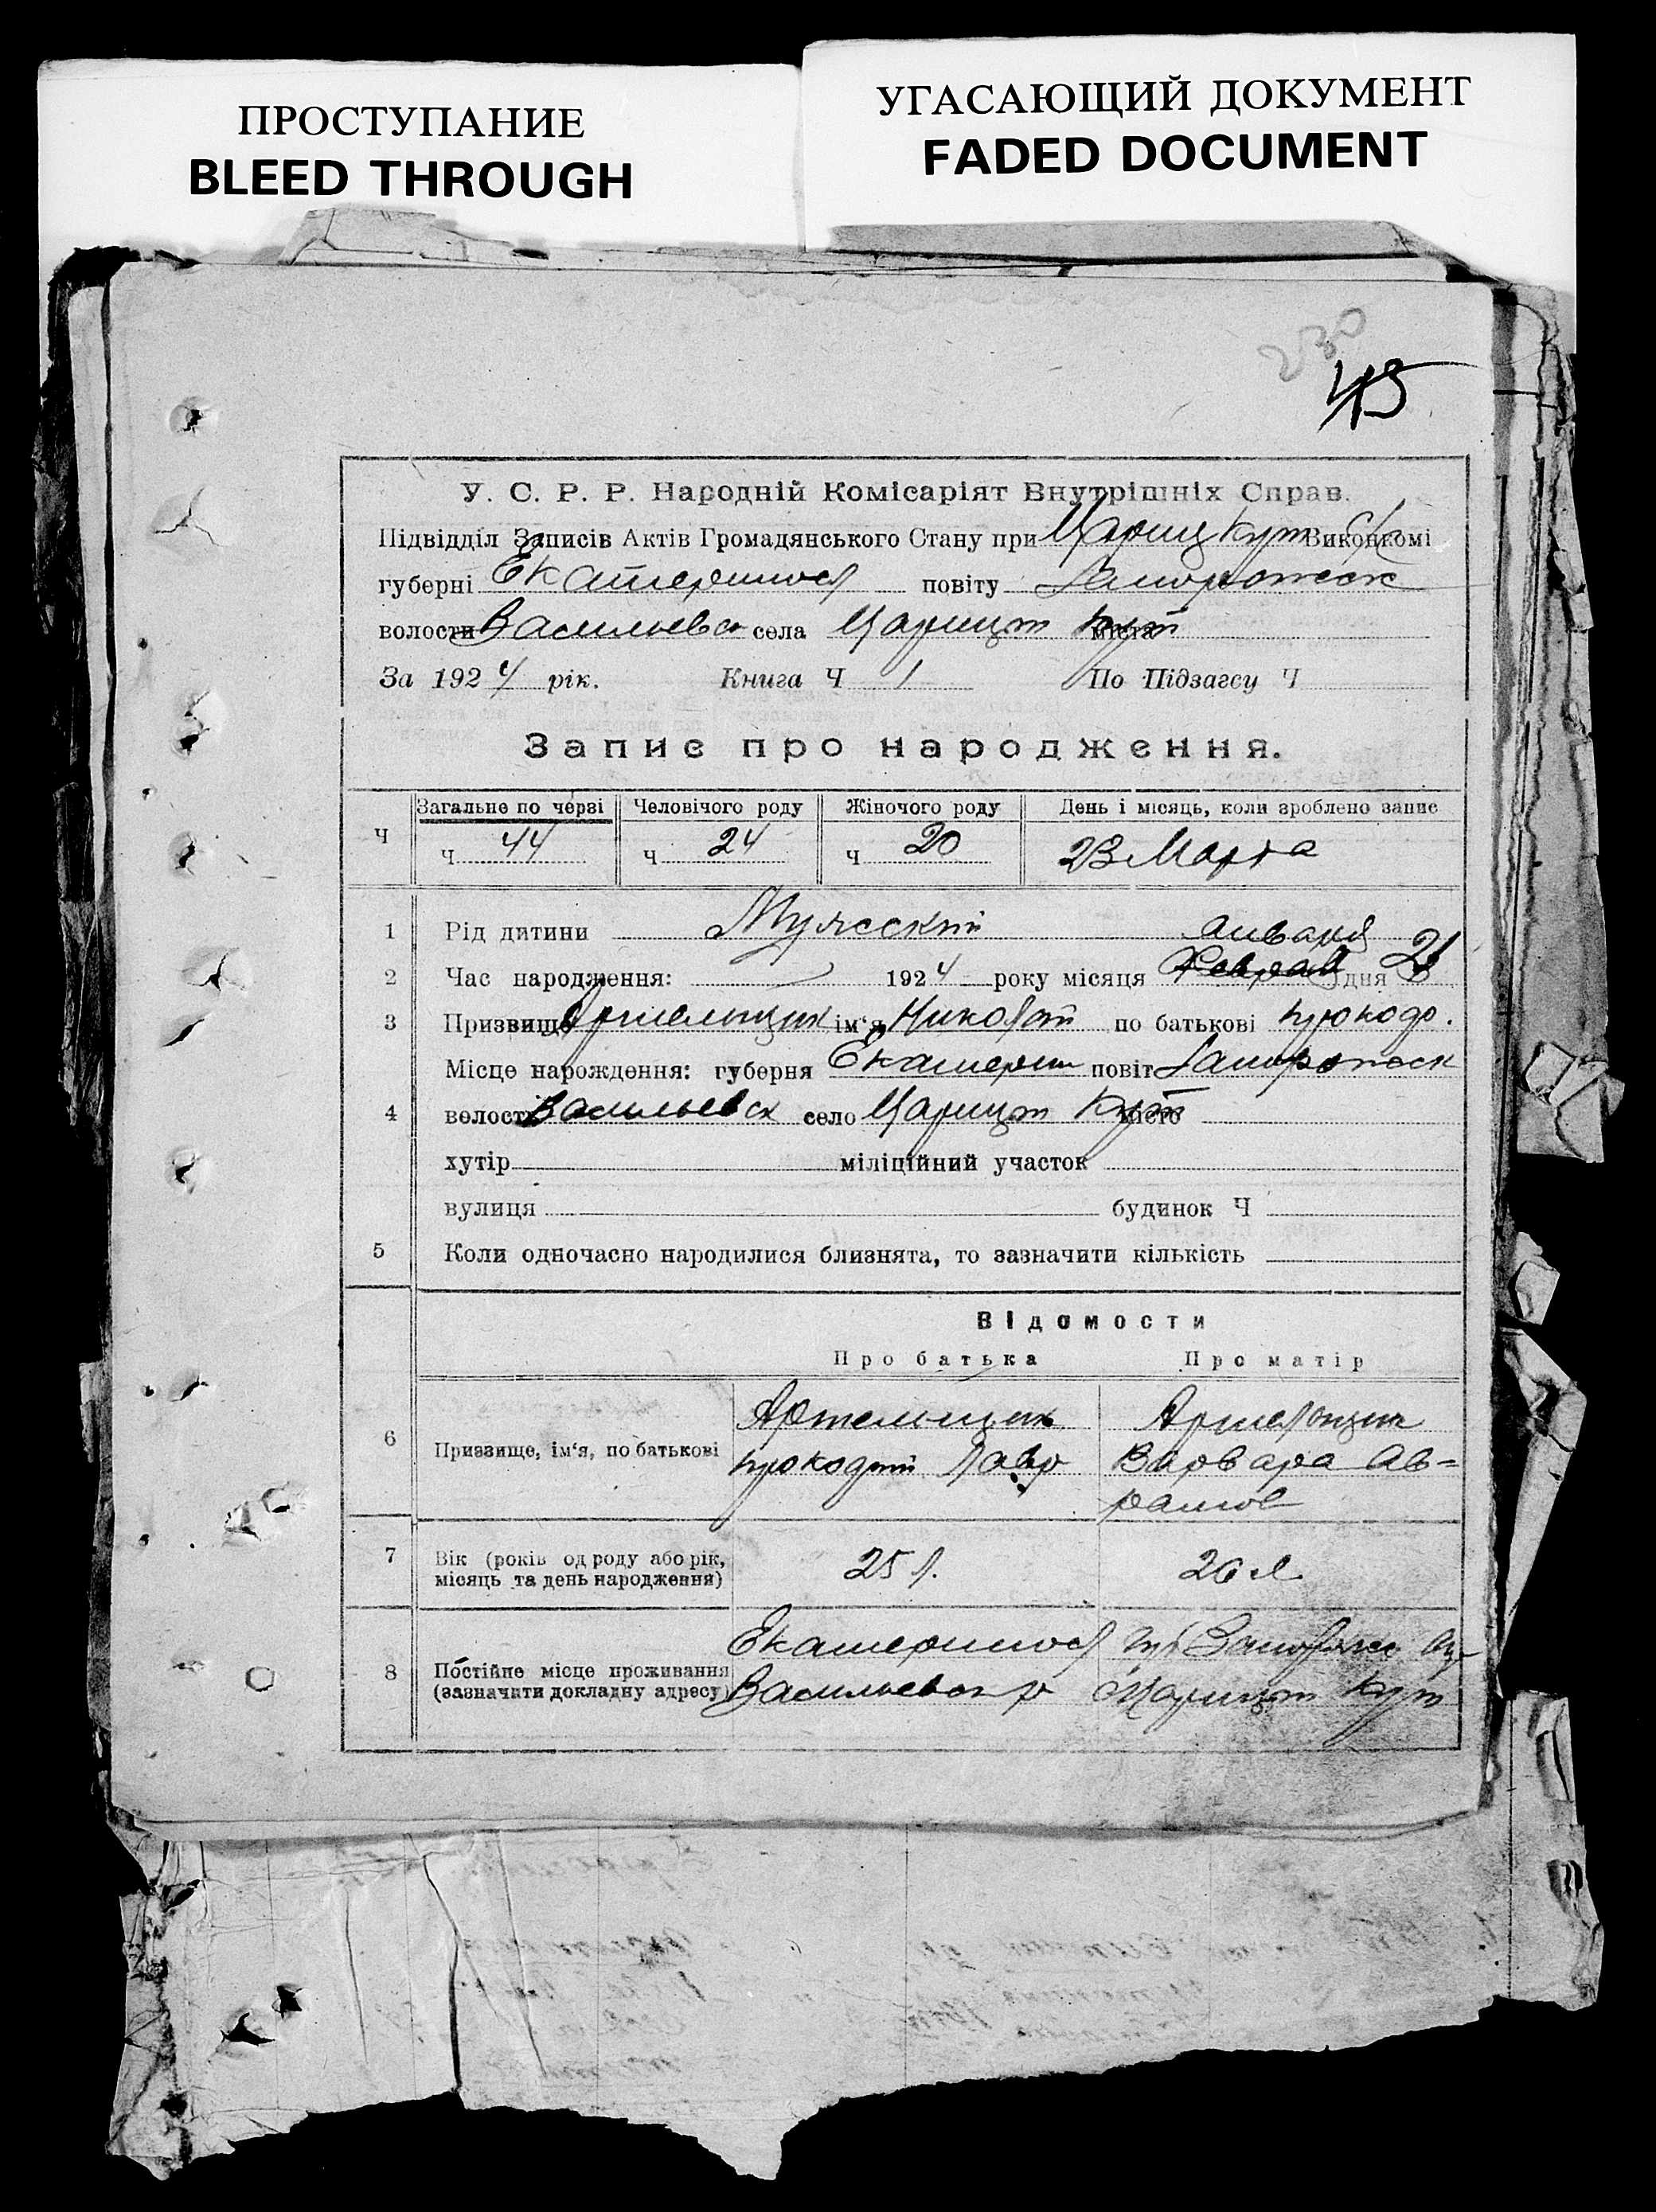 ПРОСТУПАНИЕ
BLEED THROUGH
УГАСАЮЩИЙ ДОКУМЕНТ
FADED DOCUMENT
230
45
У. С. Р. Р. Народній Комісаріят Внутрішніх Справ.
Підвідділ Записів Актів Громадянського Стану при Цариц Кут С/С Виконкомі
губерні Екатериносл повіту Запорожск
волости Васильевск села Царицт Кут міста
За 1924 рік. Книга Ч 1 По Підзагсу Ч
Запис про народження.
Ч Загальне по черзі Человічого роду Жіночого роду День і місяць, коли зроблено запис
ч 44 ч 24 ч 20 23 Марта
1 Рід дитини Мужеский
Января
2 Час народження: 1924 року місяця Февраля дня 21
3 Призвище Артельщик ім‘я Николай по батькові Прокоф.
Місце нарождення: губерня Екатерин повіт Запорожск
4 волость Васильевск село Царицт Кут місто
хутір міліційний участок
вулиця будинок Ч
5 Коли одночасно народилися близнята, то зазначити кількість
Відомости
Про батька Про матір
6 Призвище, ім‘я, по батькові
Артельщик Артельщик
Прокофий Лавр Варвара Ав=
рамов
7 Вік (років од роду або рік,
місяць та день народження)
25 л. 26 л
8 Постійне місце проживання
(зазначити докладну адресу)
Екатериносл губ Запорожс
Васильевск р Царицт Кут